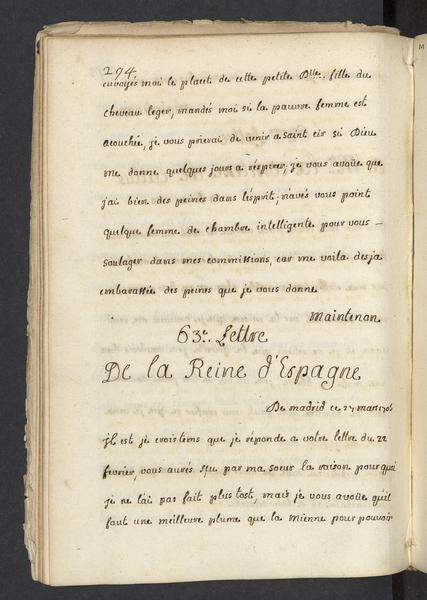 294
envoyés moi le placet de cette petite Dlle. fille du
cheveau leger, mandés moi si la pauvre femme est
acouchée, je vous prierai de venir a saint cir si Dieu
me donne quelques jours a respirer, je vous avoüe que
jai bien des peines dans l'esprit; n'avés vous point
quelque femme de chambre intelligente pour vous
soulager dans mes commissions, car me voila desja
embarassée des peines que je vous donne
Maintenon
63e. Lettre
De la Reine d'Espagne
De madrid ce mars
jl est je crois tems que je réponde a votre lettre du 22
fevrier, vous aurés sçu par ma soeur la raison pourquoi
je ne lai pas fait plus tost, mais je vous avoüe qu'il
faut une meilleure plume que la mienne pour pouvoir